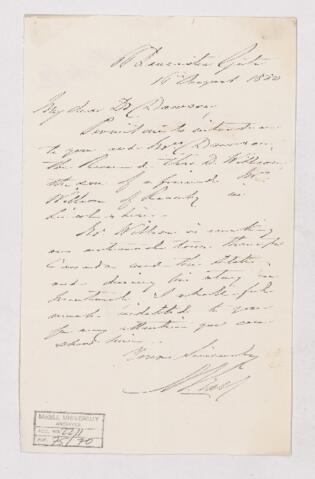 Lancaster Gate
16 August 18
My dear Dr Dawson,
Permit me to introduce
to you and Mrs Dawson,
the Reverend D. Willson
the son of a friend Mr
Willson of in
Lincolnshire.
Mr Willson is making
an extended tour through
Canada and the States
and during his stay in
Montreal I shall feel
much indebted to you
for any attention you can
show him.
Yours Sincerely
McGILL UNIVERSITY
ARCHIVES
ACC. NO. 2211
REF.